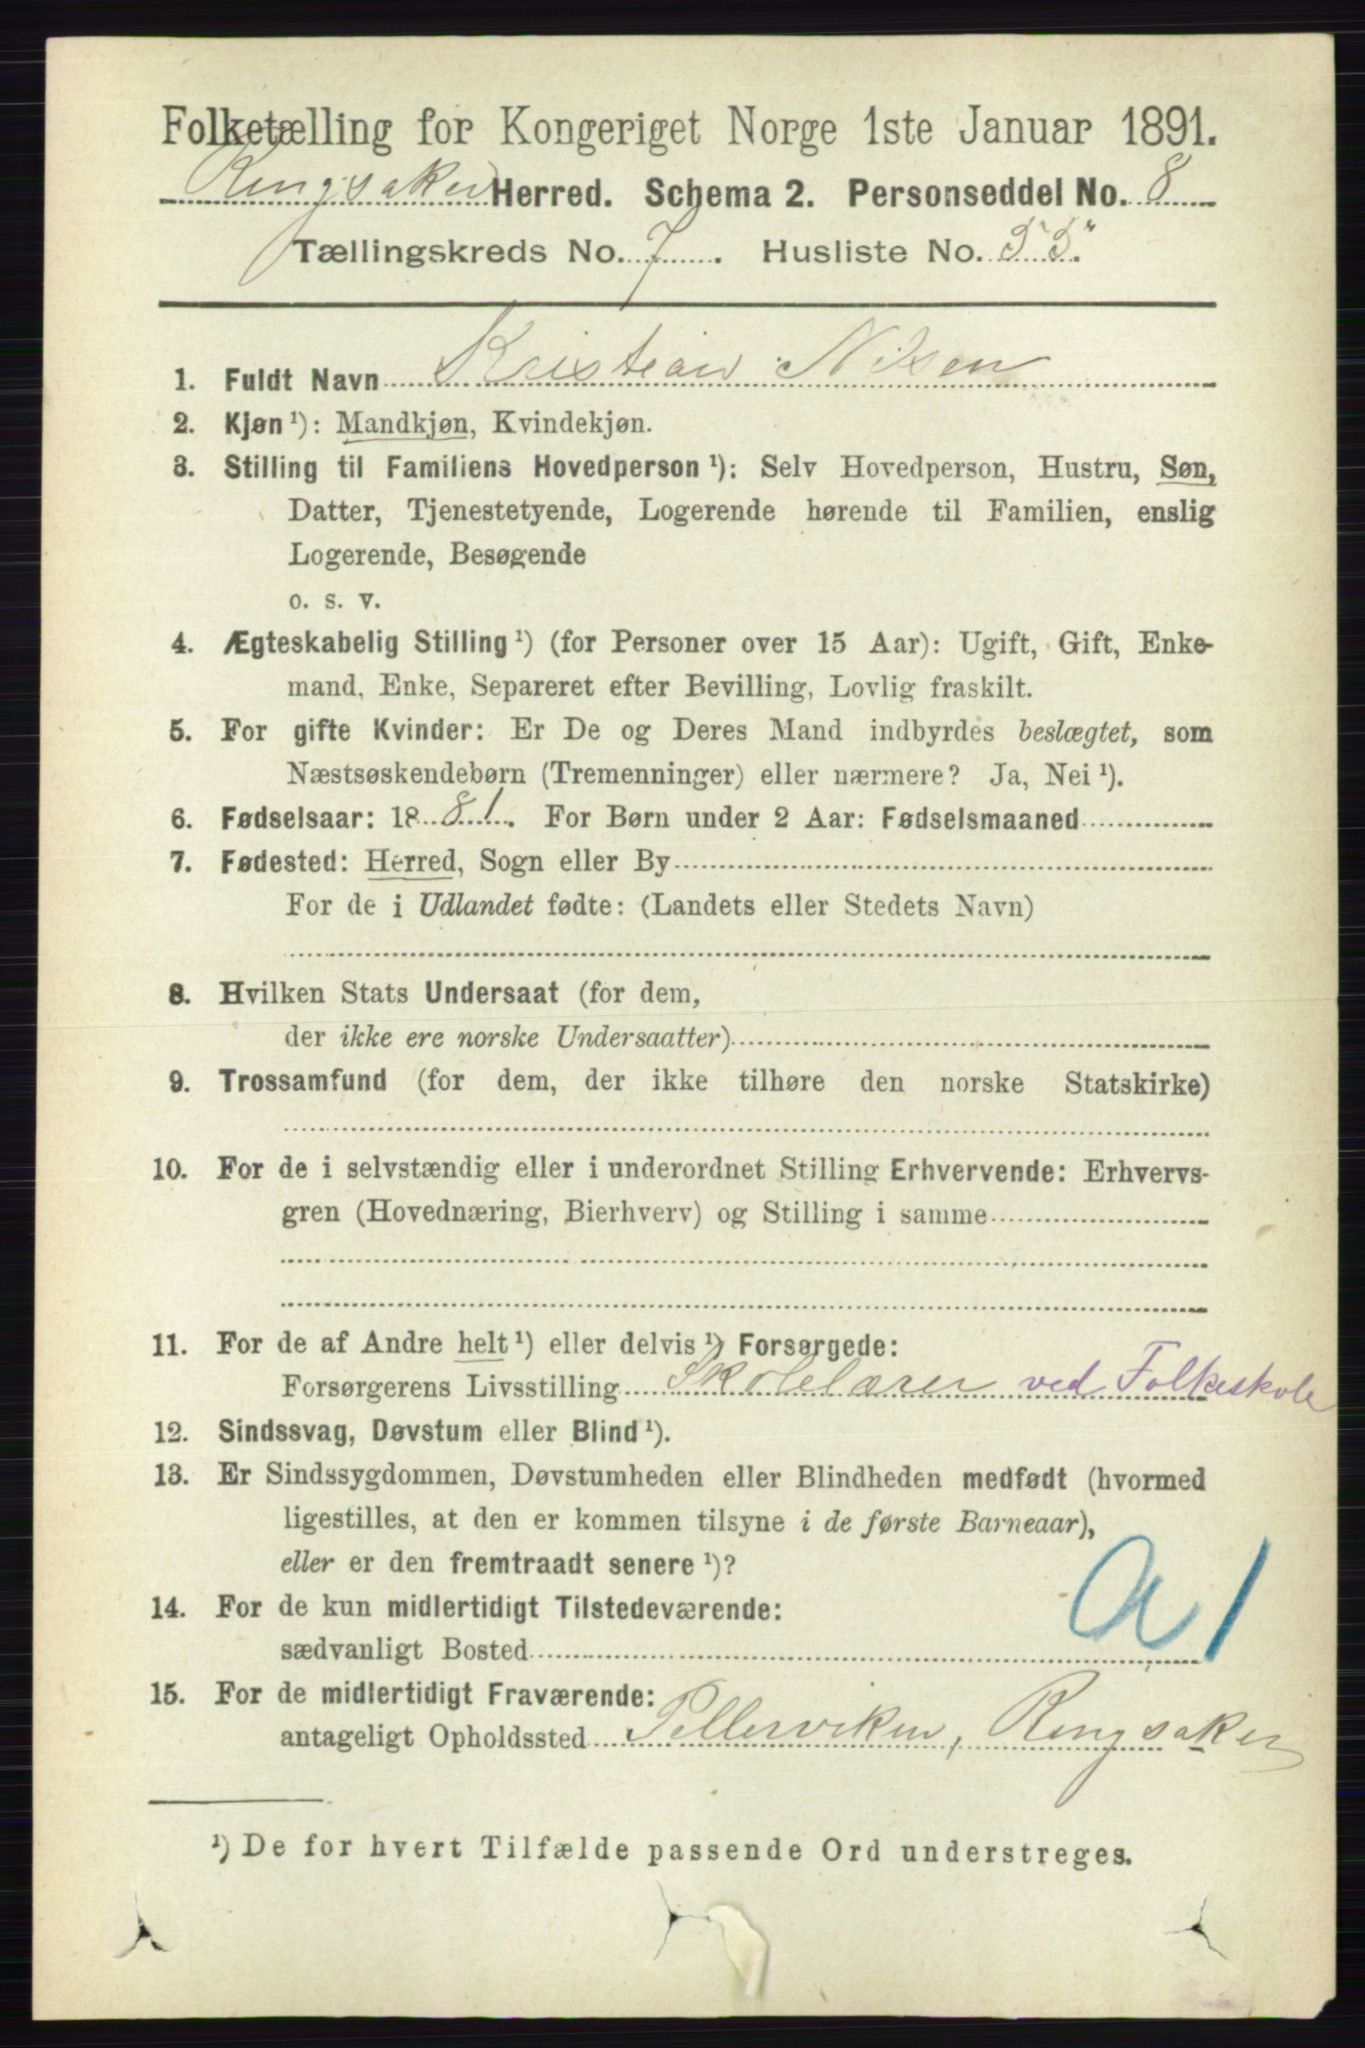 Folketælling for Kongeriget Norge 1ste Januar 1891.
Ringsaker Herred. Schema 2. Personseddel No. 8
Tællingskreds No. 7. Husliste No. 55.
1. Fuldt Navn Kristian Nilsen
2. Kjøn ¹): Mandkjøn, Kvindekjøn.
3. Stilling til Familiens Hovedperson ¹): Selv Hovedperson, Hustru, Søn,
Datter, Tjenestetyende, Logerende hørende til Familien, enslig
Logerende, Besøgende
o. s. v.
4. Ægteskabelig Stilling ¹) (for Personer over 15 Aar): Ugift, Gift, Enke-
mand, Enke, Separeret efter Bevilling, Lovlig fraskilt.
5. For gifte Kvinder: Er De og Deres Mand indbyrdes beslægtet, som
Næstsøskendebørn (Tremenninger) eller nærmere? Ja, Nei ¹).
6. Fødselsaar: 1881. For Børn under 2 Aar: Fødselsmaaned
7. Fødested: Herred, Sogn eller By
For de i Udlandet fødte: (Landets eller Stedets Navn)
8. Hvilken Stats Undersaat (for dem,
der ikke ere norske Undersaatter)
9. Trossamfund (for dem, der ikke tilhøre den norske Statskirke)
10. For de i selvstændig eller i underordnet Stilling Erhvervende: Erhvervs-
gren (Hovednæring, Bierhverv) og Stilling i samme
11. For de af Andre helt ¹) eller delvis ¹) Forsørgede:
Forsørgerens Livsstilling Skolelærer ved Folkeskole
12. Sindssvag, Døvstum eller Blind ¹).
13. Er Sindssygdommen, Døvstumheden eller Blindheden medfødt (hvormed
ligestilles, at den er kommen tilsyne i de første Barneaar),
eller er den fremtraadt senere ¹)?
14. For de kun midlertidigt Tilstedeværende:
sædvanligt Bosted
a 1
15. For de midlertidigt Fraværende:
antageligt Opholdssted Pellerviken, Ringsaker
¹) De for hvert Tilfælde passende Ord understreges.